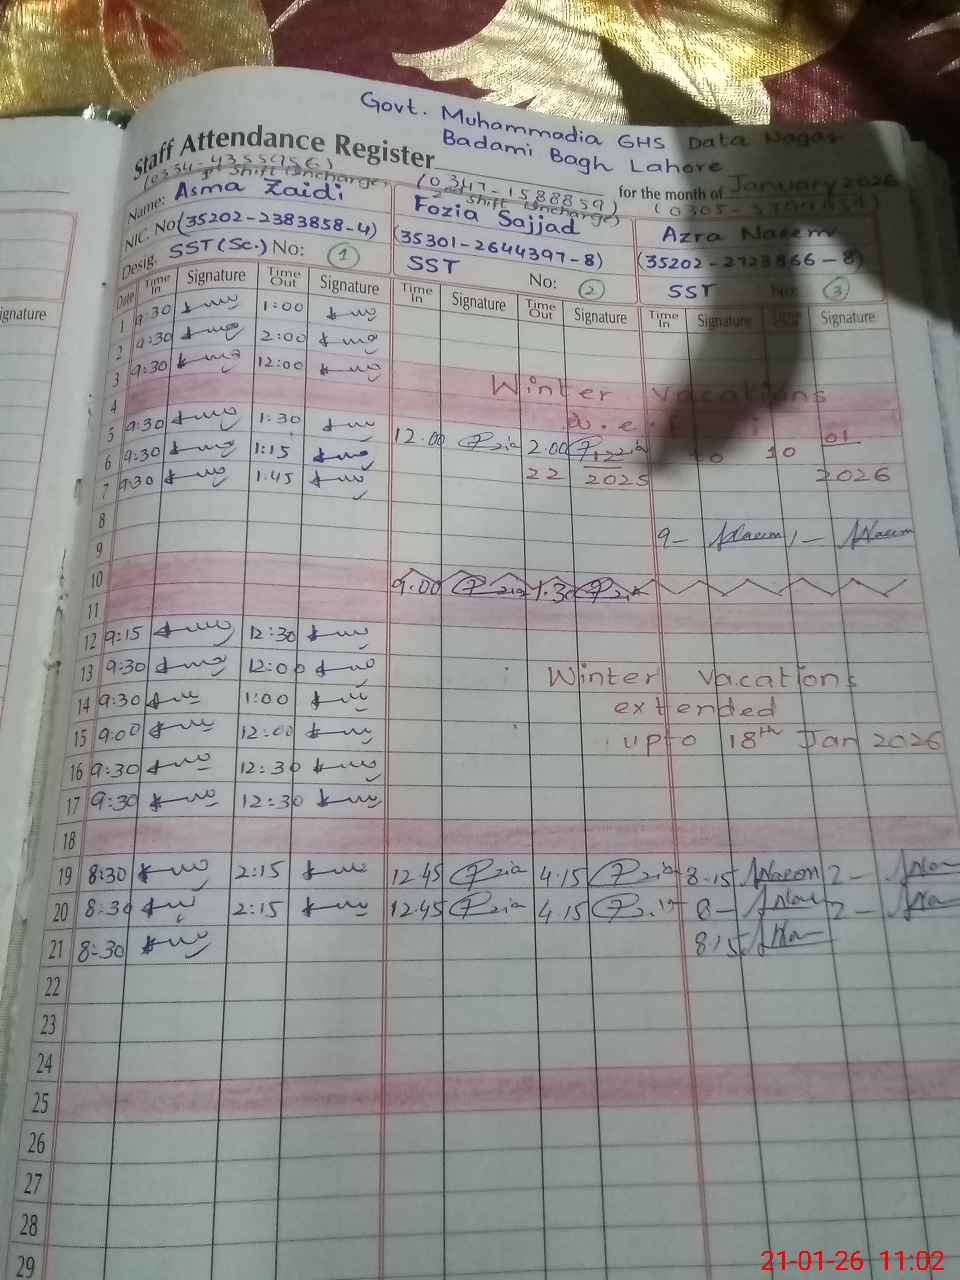 Govt. Muhammadia GHS Data Nagar
Badami Bagh Lahore
Staff Attendance Register
for the month of January 2026
(0334-4355956)
1st Shift Incharge
(0347-1588859)
2nd Shift Incharge
Name: Asma Zaidi
Fozia Sajjad
Azra Naeem
NIC. No (35202-2383858-4)
(35301-2644397-8)
(35202-2723866-8)
Desig. SST (Sc.) No: 1
SST No: 2
SST No: 3
Date Time In Signature Time Out Signature Time In Signature Time Out Signature Time In Signature Time Out Signature
1 9:30 1:00
2 9:30 2:00
3 9:30 12:00
Winter vacations
4
w.e.f
5 9:30 1:30
6 9:30 1:15 12.00 2.00
22 12 2025 10 01 2026
7 9:30 1:45
8
9 9- Naeem 1- Naeem
10 9.00 1.30
11
12 9:15 12:30
13 9:30 12:00
Winter vacations
14 9:30 1:00
extended
15 9:00 12:00
upto 18th Jan 2026
16 9:30 12:30
17 9:30 12:30
18
19 8:30 2:15 12.45 4.15 8.15 Naeem 2-
20 8:30 2:15 12.45 4.15 8- 2-
21 8:30 8.15
22
23
24
25
26
27
28
29
ignature
21-01-26 11:02